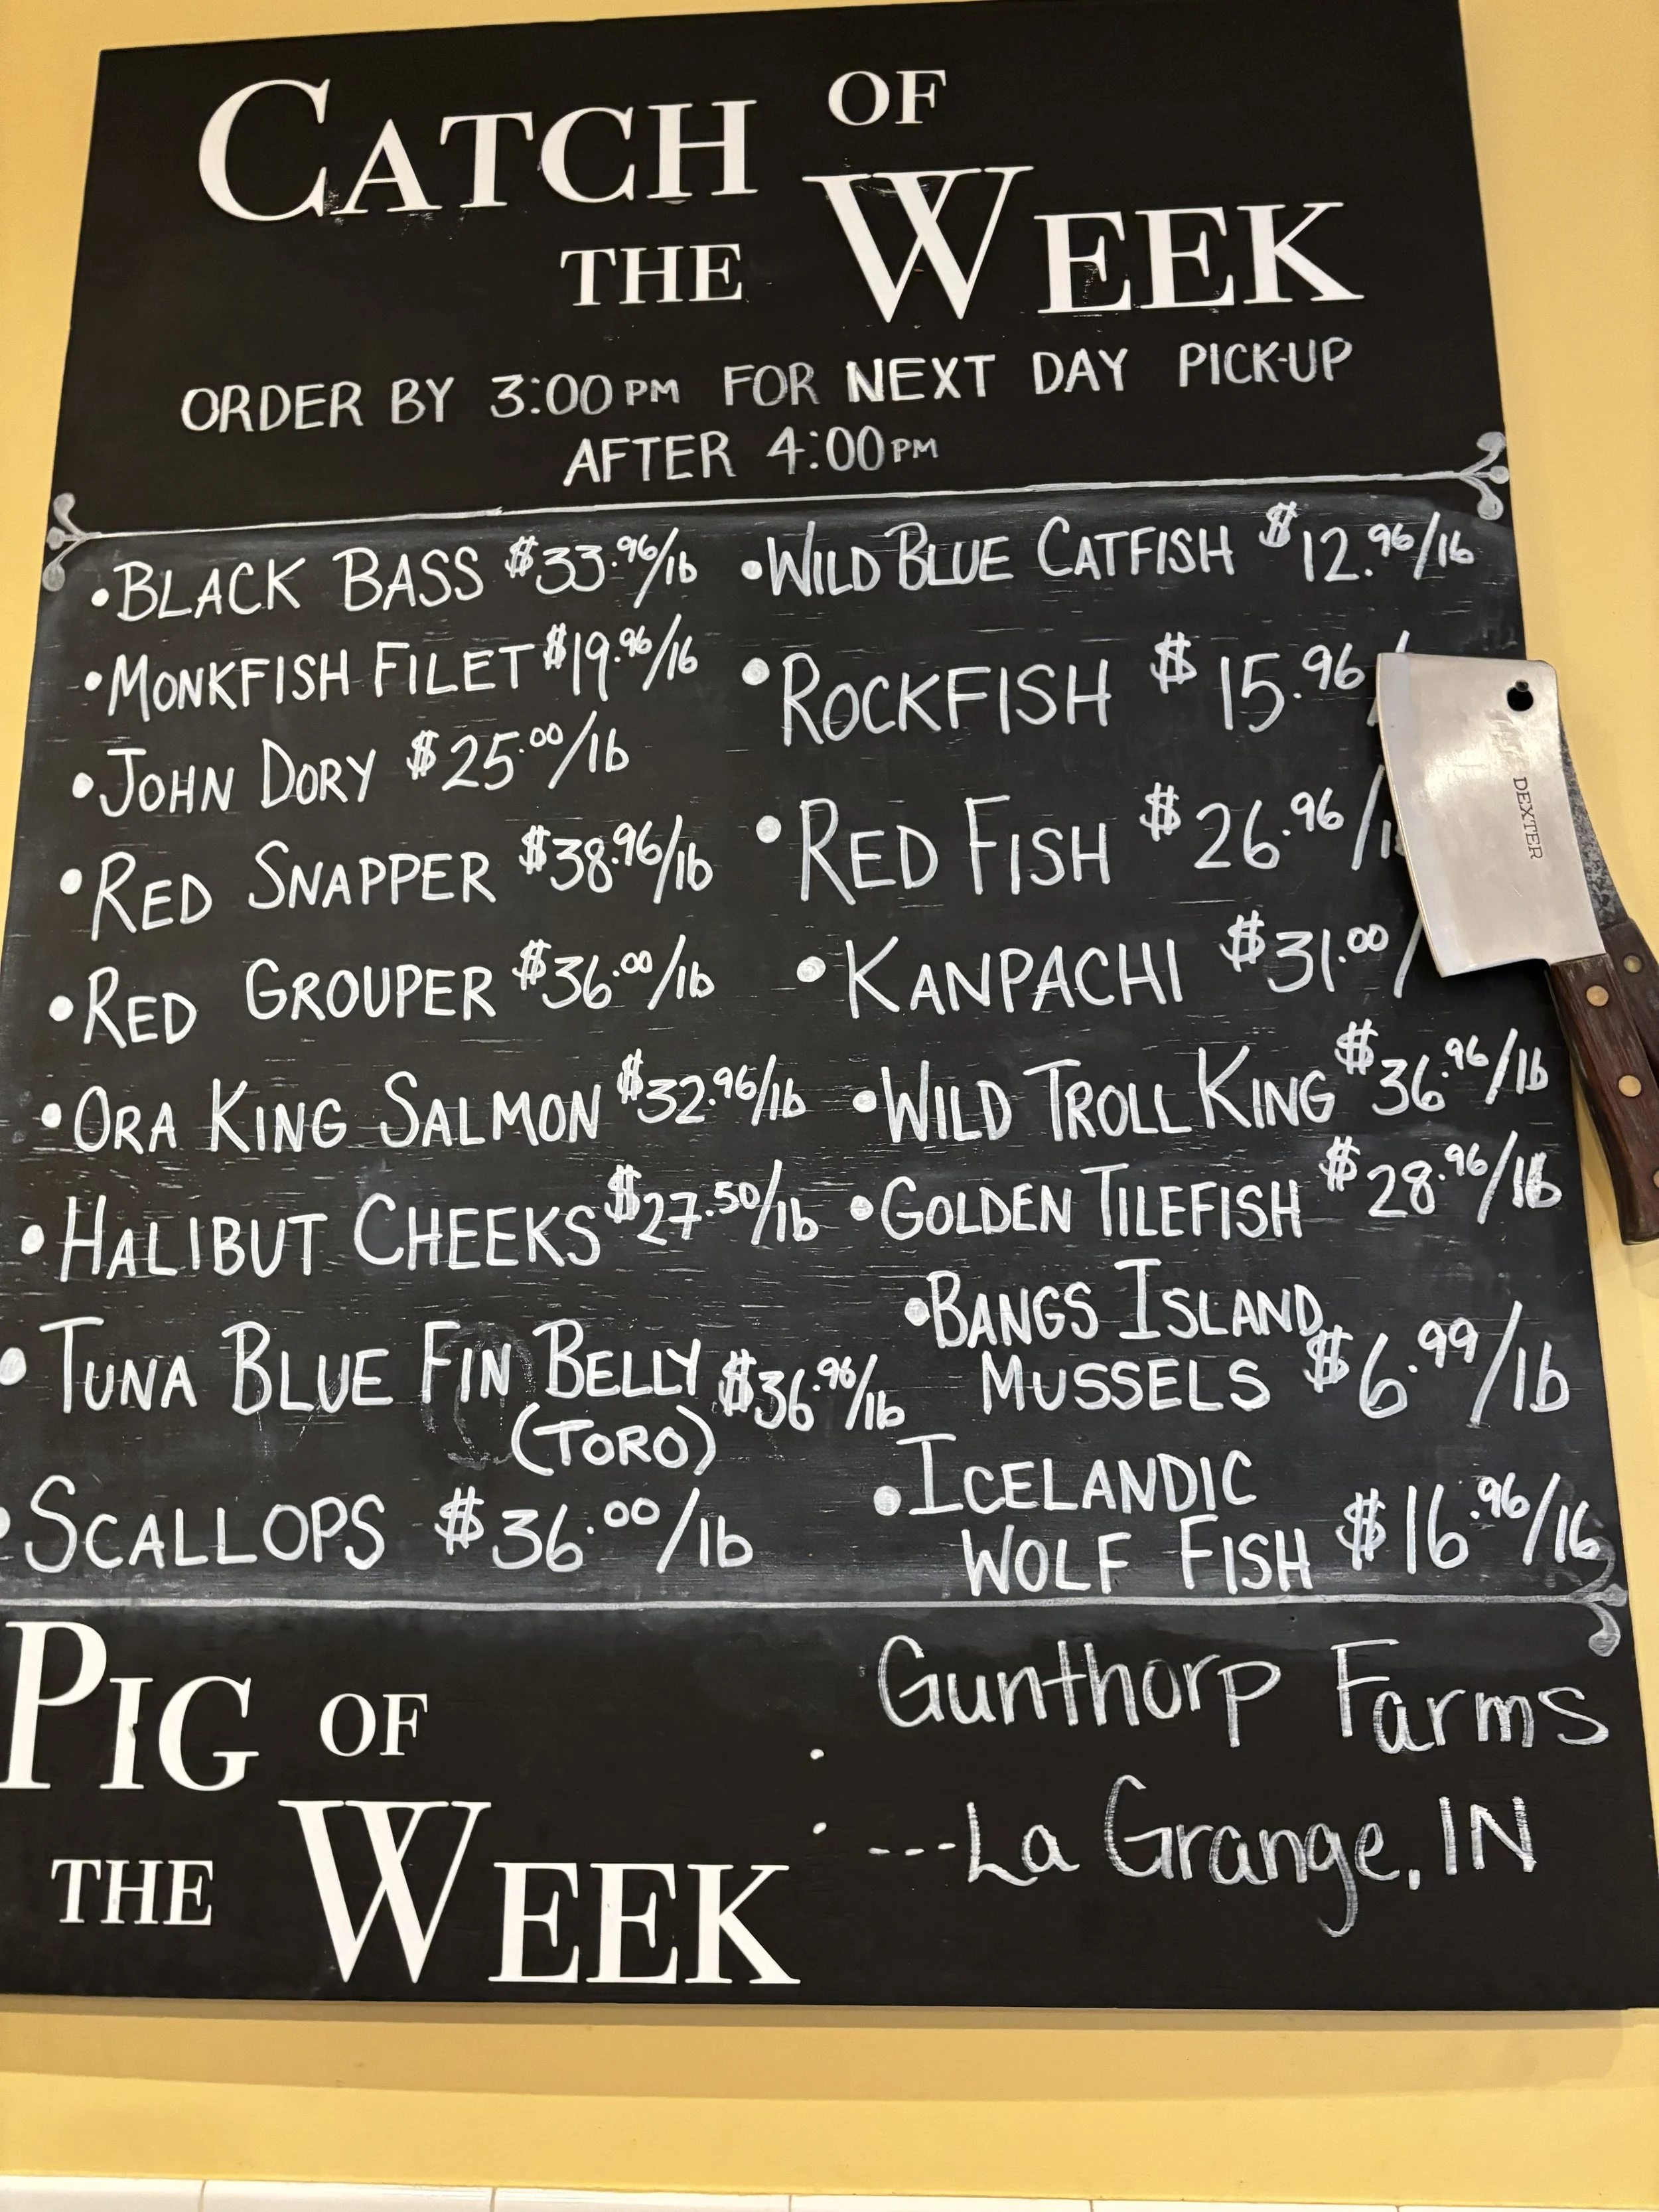 CATCH OF
THE WEEK
ORDER BY 3:00PM FOR NEXT DAY PICK-UP
AFTER 4:00PM
• BLACK BASS $33.96/lb
• MONKFISH FILET $19.96/lb
• JOHN DORY $25.00/lb
• RED SNAPPER $38.96/lb
• RED GROUPER $36.00/lb
• ORA KING SALMON $32.96/lb
• HALIBUT CHEEKS $27.50/lb
• TUNA BLUE FIN BELLY $36.96/lb
(TORO)
• SCALLOPS $36.00/lb
• WILD BLUE CATFISH $12.96/lb
• ROCKFISH $15.96/
• RED FISH $26.96/l
• KANPACHI $31.00/
• WILD TROLL KING $36.96/lb
• GOLDEN TILEFISH $28.96/lb
• BANGS ISLAND
MUSSELS $6.99/lb
• ICELANDIC
WOLF FISH $16.96/lb
DEXTER
PIG OF
THE WEEK
: Gunthorp Farms
---La Grange, IN